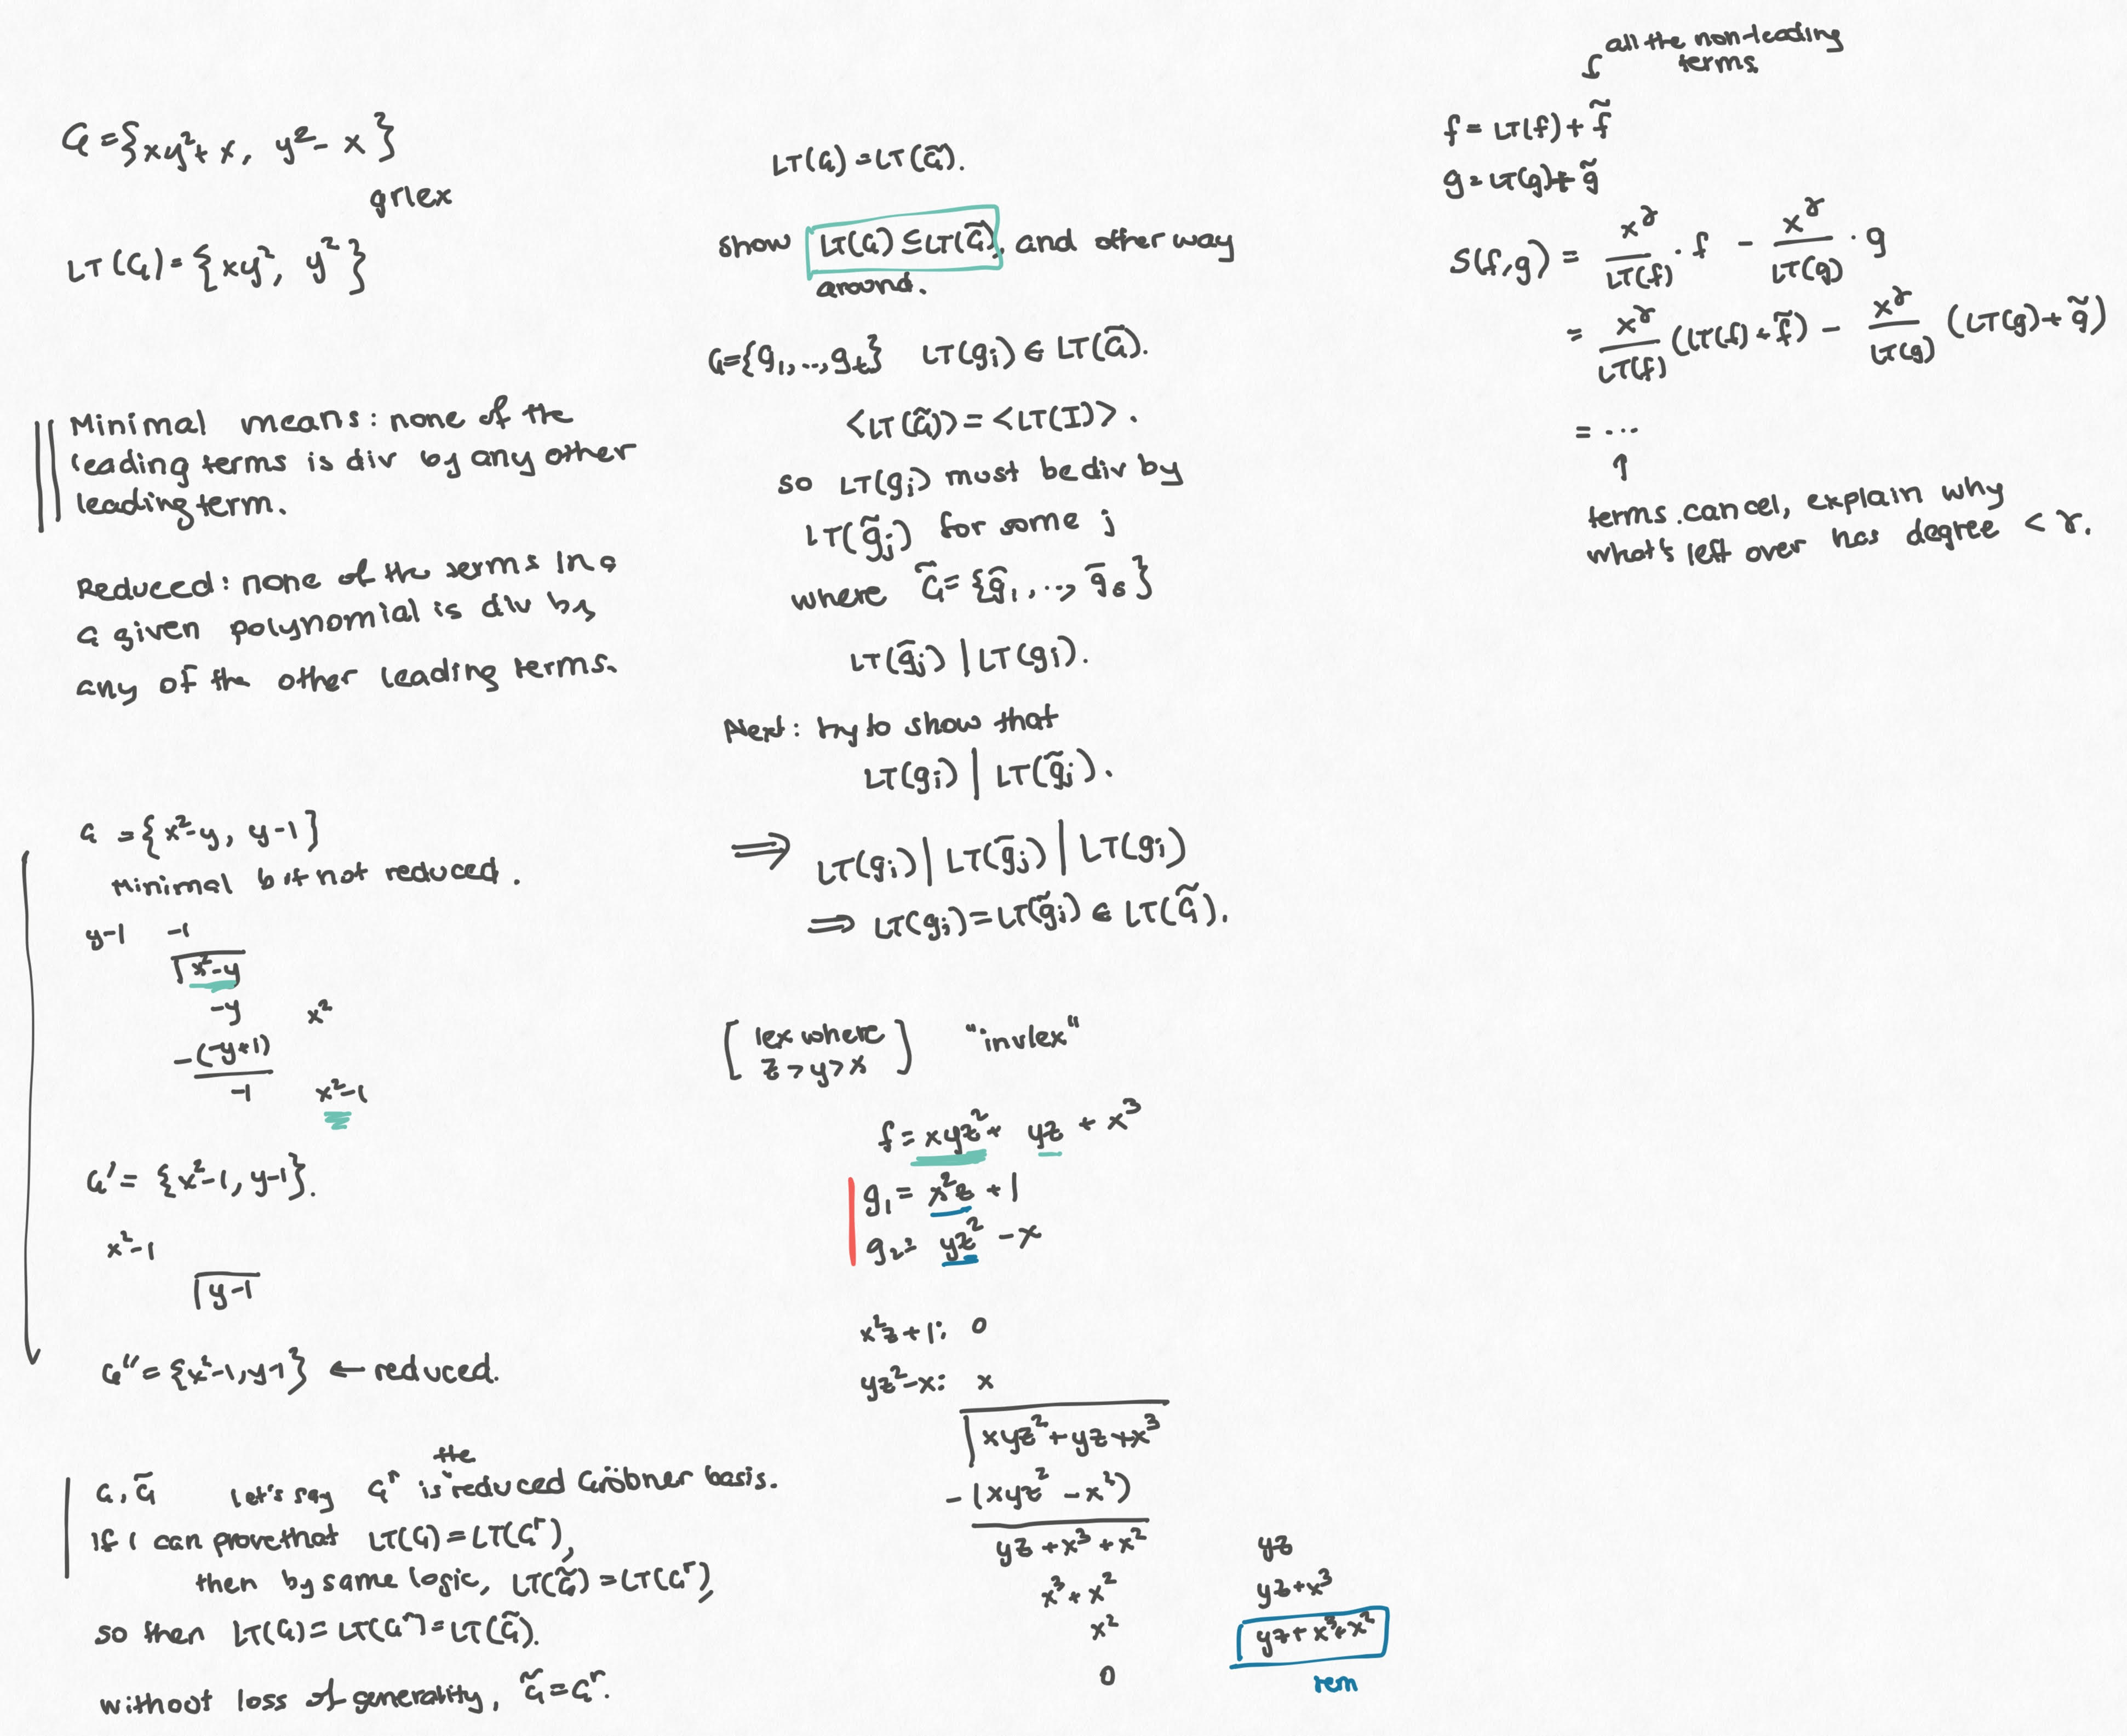 G = {xy²+ x, y² - x}
grlex
LT(G) = {xy², y²}
Minimal means: none of the
leading terms is div by any other
leading term.
Reduced: none of the terms in a
a given polynomial is div by
any of the other leading terms.
G = {x²-y, y-1}
Minimal but not reduced.
y-1 -1
x²-y
-y x²
-(-y+1)
-1 x²-1
G' = {x²-1, y-1}.
x²-1
y-1
G'' = {x²-1, y-1} ← reduced.
the
G, G̃ let's say Gʳ is reduced Gröbner basis.
If I can prove that LT(G) = LT(Gʳ),
then by same logic, LT(G̃) = LT(Gʳ),
so then LT(G) = LT(Gʳ) = LT(G̃).
without loss of generality, G̃ = Gʳ.
LT(G) = LT(G̃).
show LT(G) ⊆ LT(G̃), and other way
around.
G = {g₁, ..., gₜ} LT(gᵢ) ∈ LT(G̃).
<LT(G̃)> = <LT(I)>.
so LT(gᵢ) must be div by
LT(g̃ⱼ) for some j
where G̃ = {g̃₁, ..., g̃ₛ}
LT(g̃ⱼ) | LT(gᵢ).
Next: try to show that
LT(gᵢ) | LT(g̃ⱼ).
⟹ LT(gᵢ) | LT(g̃ⱼ) | LT(gᵢ)
⟹ LT(gᵢ) = LT(g̃ⱼ) ∈ LT(G̃).
[lex where "invlex"
z > y > x]
f = xyz² + yz + x³
g₁ = x²z + 1
g₂ = yz² - x
x²z + 1: 0
yz² - x: x
xyz² + yz + x³
-(xyz² - x²)
yz + x³ + x² yz
x³ + x² yz + x³
x² yz + x³ + x²
0 rem
all the non-leading
terms
f = LT(f) + f̃
g = LT(g) + g̃
S(f,g) = x^γ/LT(f) · f - x^γ/LT(g) · g
= x^γ/LT(f) (LT(f) + f̃) - x^γ/LT(g) (LT(g) + g̃)
= ...
↑
terms cancel, explain why
what's left over has degree < γ.